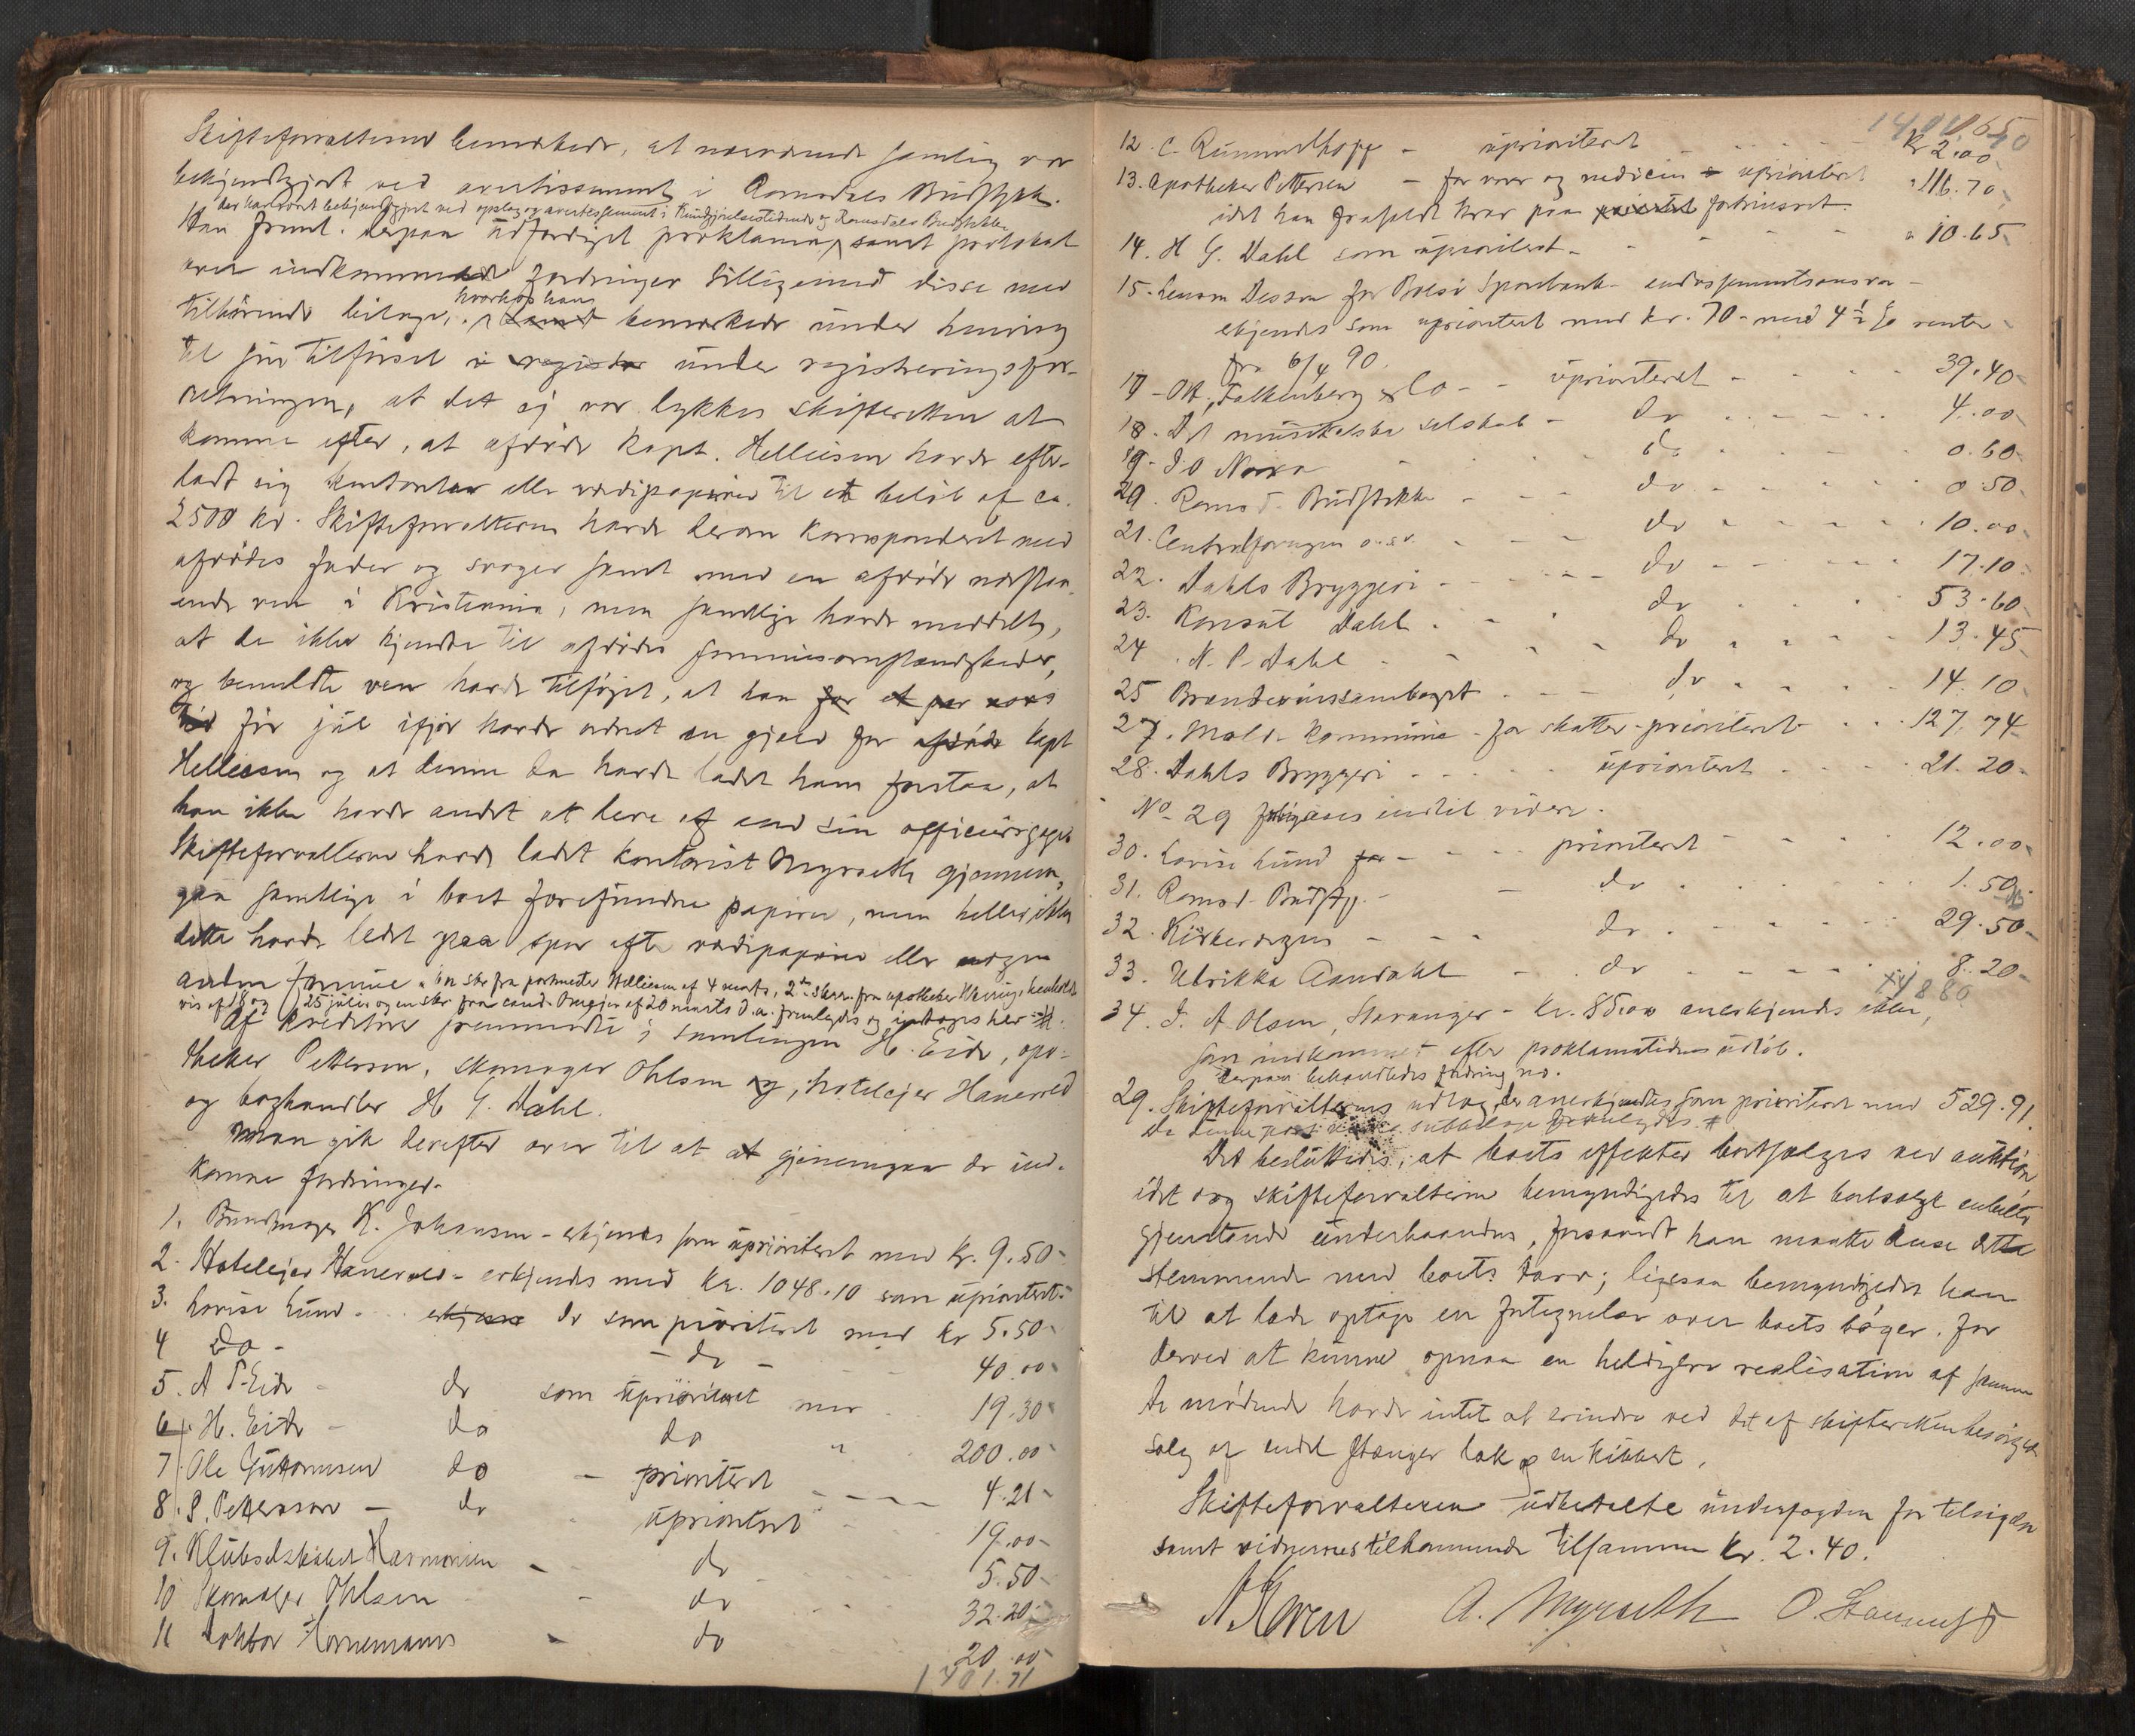 Skifteforvalteren bemærkede, at nærværende samling var
bekjendtgjort ved avertissement i Romsdals Budstikke.
der har været bekjendtgjort ved opslag og avertissement i Kundgjørelsestidende og Romsdals Budstikke
Han freml. derpaa udfærdiget proklama, samt protokol
over indkomne fordringer tilligemed disse med
hvorhos han
tilhørende bilage, samt bemærkede under henvisning
til sin tilførsel i register under registreringsfor-
retningen, at det ej var lykkes skifteretten at
komme efter, at afdøde kapt. Helliesen havde efter-
ladt sig kontanter eller værdipapirer til et beløb af ca.
2500 kr. Skifteforvalteren havde derom korresponderet med
afdødes fader og svoger samt med en afdøde nærstaa-
ende ven i Kristiania, men samtlige havde meddelt,
at de ikke kjendte til afdødes formuesomstændigheder,
og bemeldte ven havde tilføjet, at han for et par aars
tid før jul ifjor havde ordnet en gjæld for afdøde kapt
Helliesen og at denne da havde ladet ham forstaa, at
han ikke havde andet at leve af end sin officiersgage.
Skifteforvalteren havde ladet kontorist Myrseth gjennem-
gaa samtlige i boet forefundne papirer, men heller ikke
dette havde ledet paa spor efter værdipapirer eller nogen
anden formue. En skr fra postmester Helliesen af 4 marts, 2de skr. fra apotheker henholds-
vis af 18 og 25 juli og en skr fra cand. af 20 marts d.a. fremlagdes og indtages her #.
Af kreditorer fremmødte i samlingen H. Eide, apo-
theker Petterson, skomager Ohlsen og, hotelejer Hanevold
og boghandler H G. Dahl.
Man gik derefter over til at at gjennemgaa de ind-
komne fordringer.
1. Bundtmager K. Johansen - erkjendes som uprioriteret med Kr. 9.50
2. Hotelejer Hanevold - erkjendes med kr. 1048.10 som uprioriteret.
3. Lovise Lund - erkjendes do som prioriteret med kr 5.50
4 Do - - do - 40.00
5. A P. Eide - do som uprioriteret med 19.30
6. H. Eide - do do " 200.00
7. Ole Guttormsen do - prioriteret 4.21
8. P. Petterson - do uprioriteret 19.00
9. Klubselskabet Harmonien - do 5.50
10 Skomager Ohlsen - do 32.20
11 Doktor Hornemann - do 20.00
1401.71
12. C. Rummelhoff - uprioriteret kr 2.00
13. Apotheker Petterson - for varer og medicin uprioriteret 116.70
idet han frafaldt krav paa fortrinsret.
14. H G. Dahl som uprioriteret - 10.65
15. Lensm Dessen for Bolsø Sparebank - endossementsansvar -
erkjendes som uprioriteret med kr. 70 - med 4 1/2 % rente
fra 6/4 90.
17 - Ott, Falkenberg & Co - - uprioriteret - 39.40
18. Det musikalske selskab - do 4.00
19. I O Nora do 0.60
20. Romsd. Budstikke - do 0.50
21. Centralforeningen o.s.v. - do 10.00
22. Dahls Bryggeri - do 17.10
23. Konsul Dahl - do 53.60
24. N. P. Dahl - do 13.45
25 Brændevinssamlaget - do 14.10
27. Molde kommune - for skatter - prioriteret 127.74
28. Dahls Bryggeri - uprioriteret 21.20
No 29 forbigaaes indtil videre.
30. Lovise Lund for - prioriteret 12.00
31. Romsd. Budst. - do 1.50
32. Kirkevergen - do 29.50
33. Ulrikke Aandahl - do 8.20
34. I. A Olsen, Stavanger - kr. 85.00 anerkjendes ikke,
som indkommet efter proklamatidens udløb.
Derpaa behandledes fordring no.
29. Skifteforvalterens udlæg, der anerkjendtes som prioriteret med 529.91.
Det besluttedes, at boets effekter bortsælges ved auktion
idet dog skifteforvalteren bemyndigedes til at bortsælge enkelte
gjenstande underhaanden, forsaavidt han maatte anse dette
stemmende med boets tarv; ligesaa bemyndigedes han
til at lade optage en fortegnelse over boets bøger, for
derved at kunne opnaa en heldigere realisation af samme
De mødende havde intet at erindre ved det af skifteretten besørgede
salg af endel stænger lak og en kikkert.
Skifteforvalteren udbetalte underfogden for tilsigelse
samt vidnernes tilkommende tilsammen Kr. 2.40.
A. Myrseth